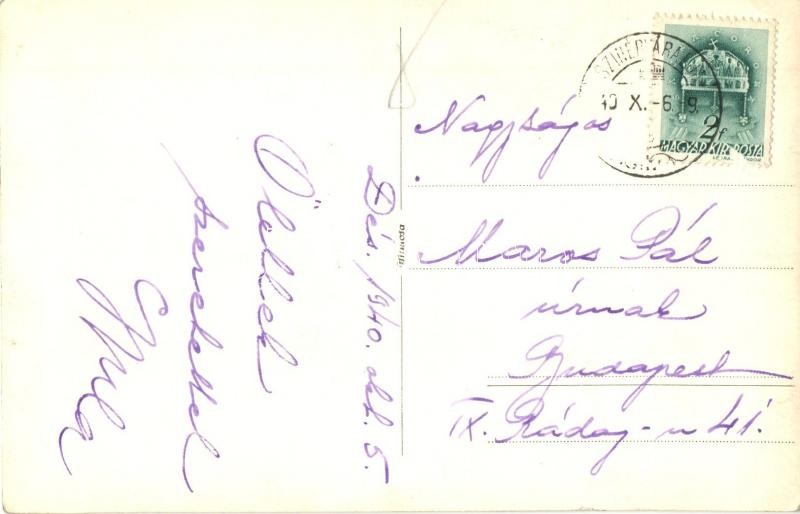 Dés. 1940. okt. 5.
Ölellek
szeretettel
Gyula
Nagyságos
Maros Pál
úrnak
Budapest
IX. Ráday-u 41.
SZINÉRVÁRALJA
40 X. -6. 9
2f
MAGYAR KIR. POSTA